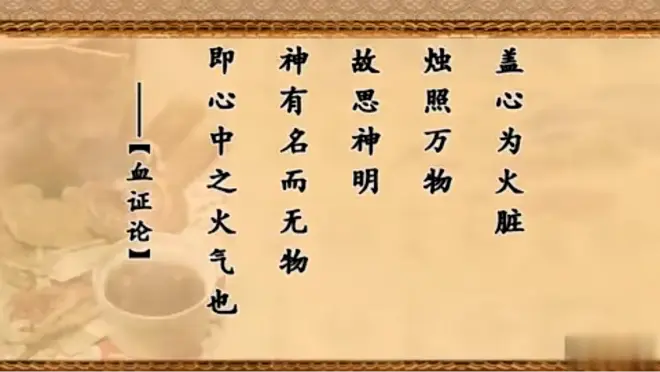 盖心为火脏
烛照万物
故思神明
神有名而无物
即心中之火气也
——【血证论】